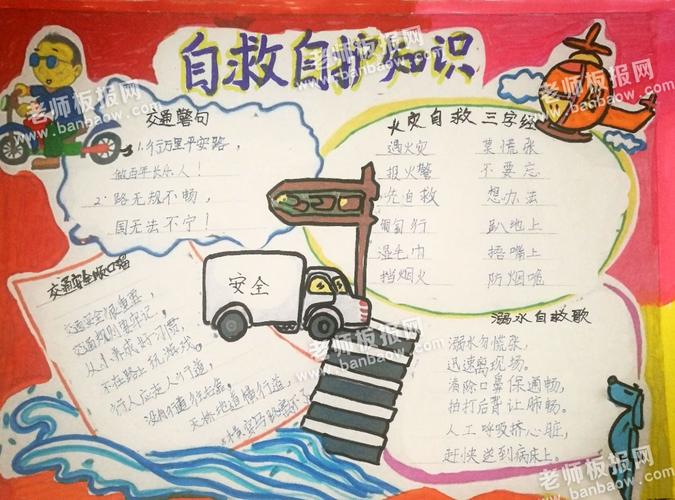 自救自护知识
交通警句
1.行万里平安路，
做百年长乐人！
2.路无规不畅，
国无法不宁！
火灾自救三字经
遇火灾 莫慌张
报火警 不要忘
先自救 想办法
匍匐行 趴地上
湿毛巾 捂嘴上
挡烟火 防烟呛
安全
交通安全顺口溜
交通安全很重要，
交通规则要牢记，
从小养成好习惯，
不在路上玩游戏。
行人应走人行道，
没有行道往右靠，
天桥地道横行道，
横穿马路
溺水自救歌
溺水勿慌张，
迅速离现场。
清除口鼻保通畅，
拍打后背让肺畅。
人工呼吸挤心脏，
赶快送到病床上。
老师板报网
www.banbaow.com
老师板报网
www.banbaow.com
老师板报网
www.banbaow.com
老师板报网
www.banbaow.com
老师板报网
www.banbaow.com